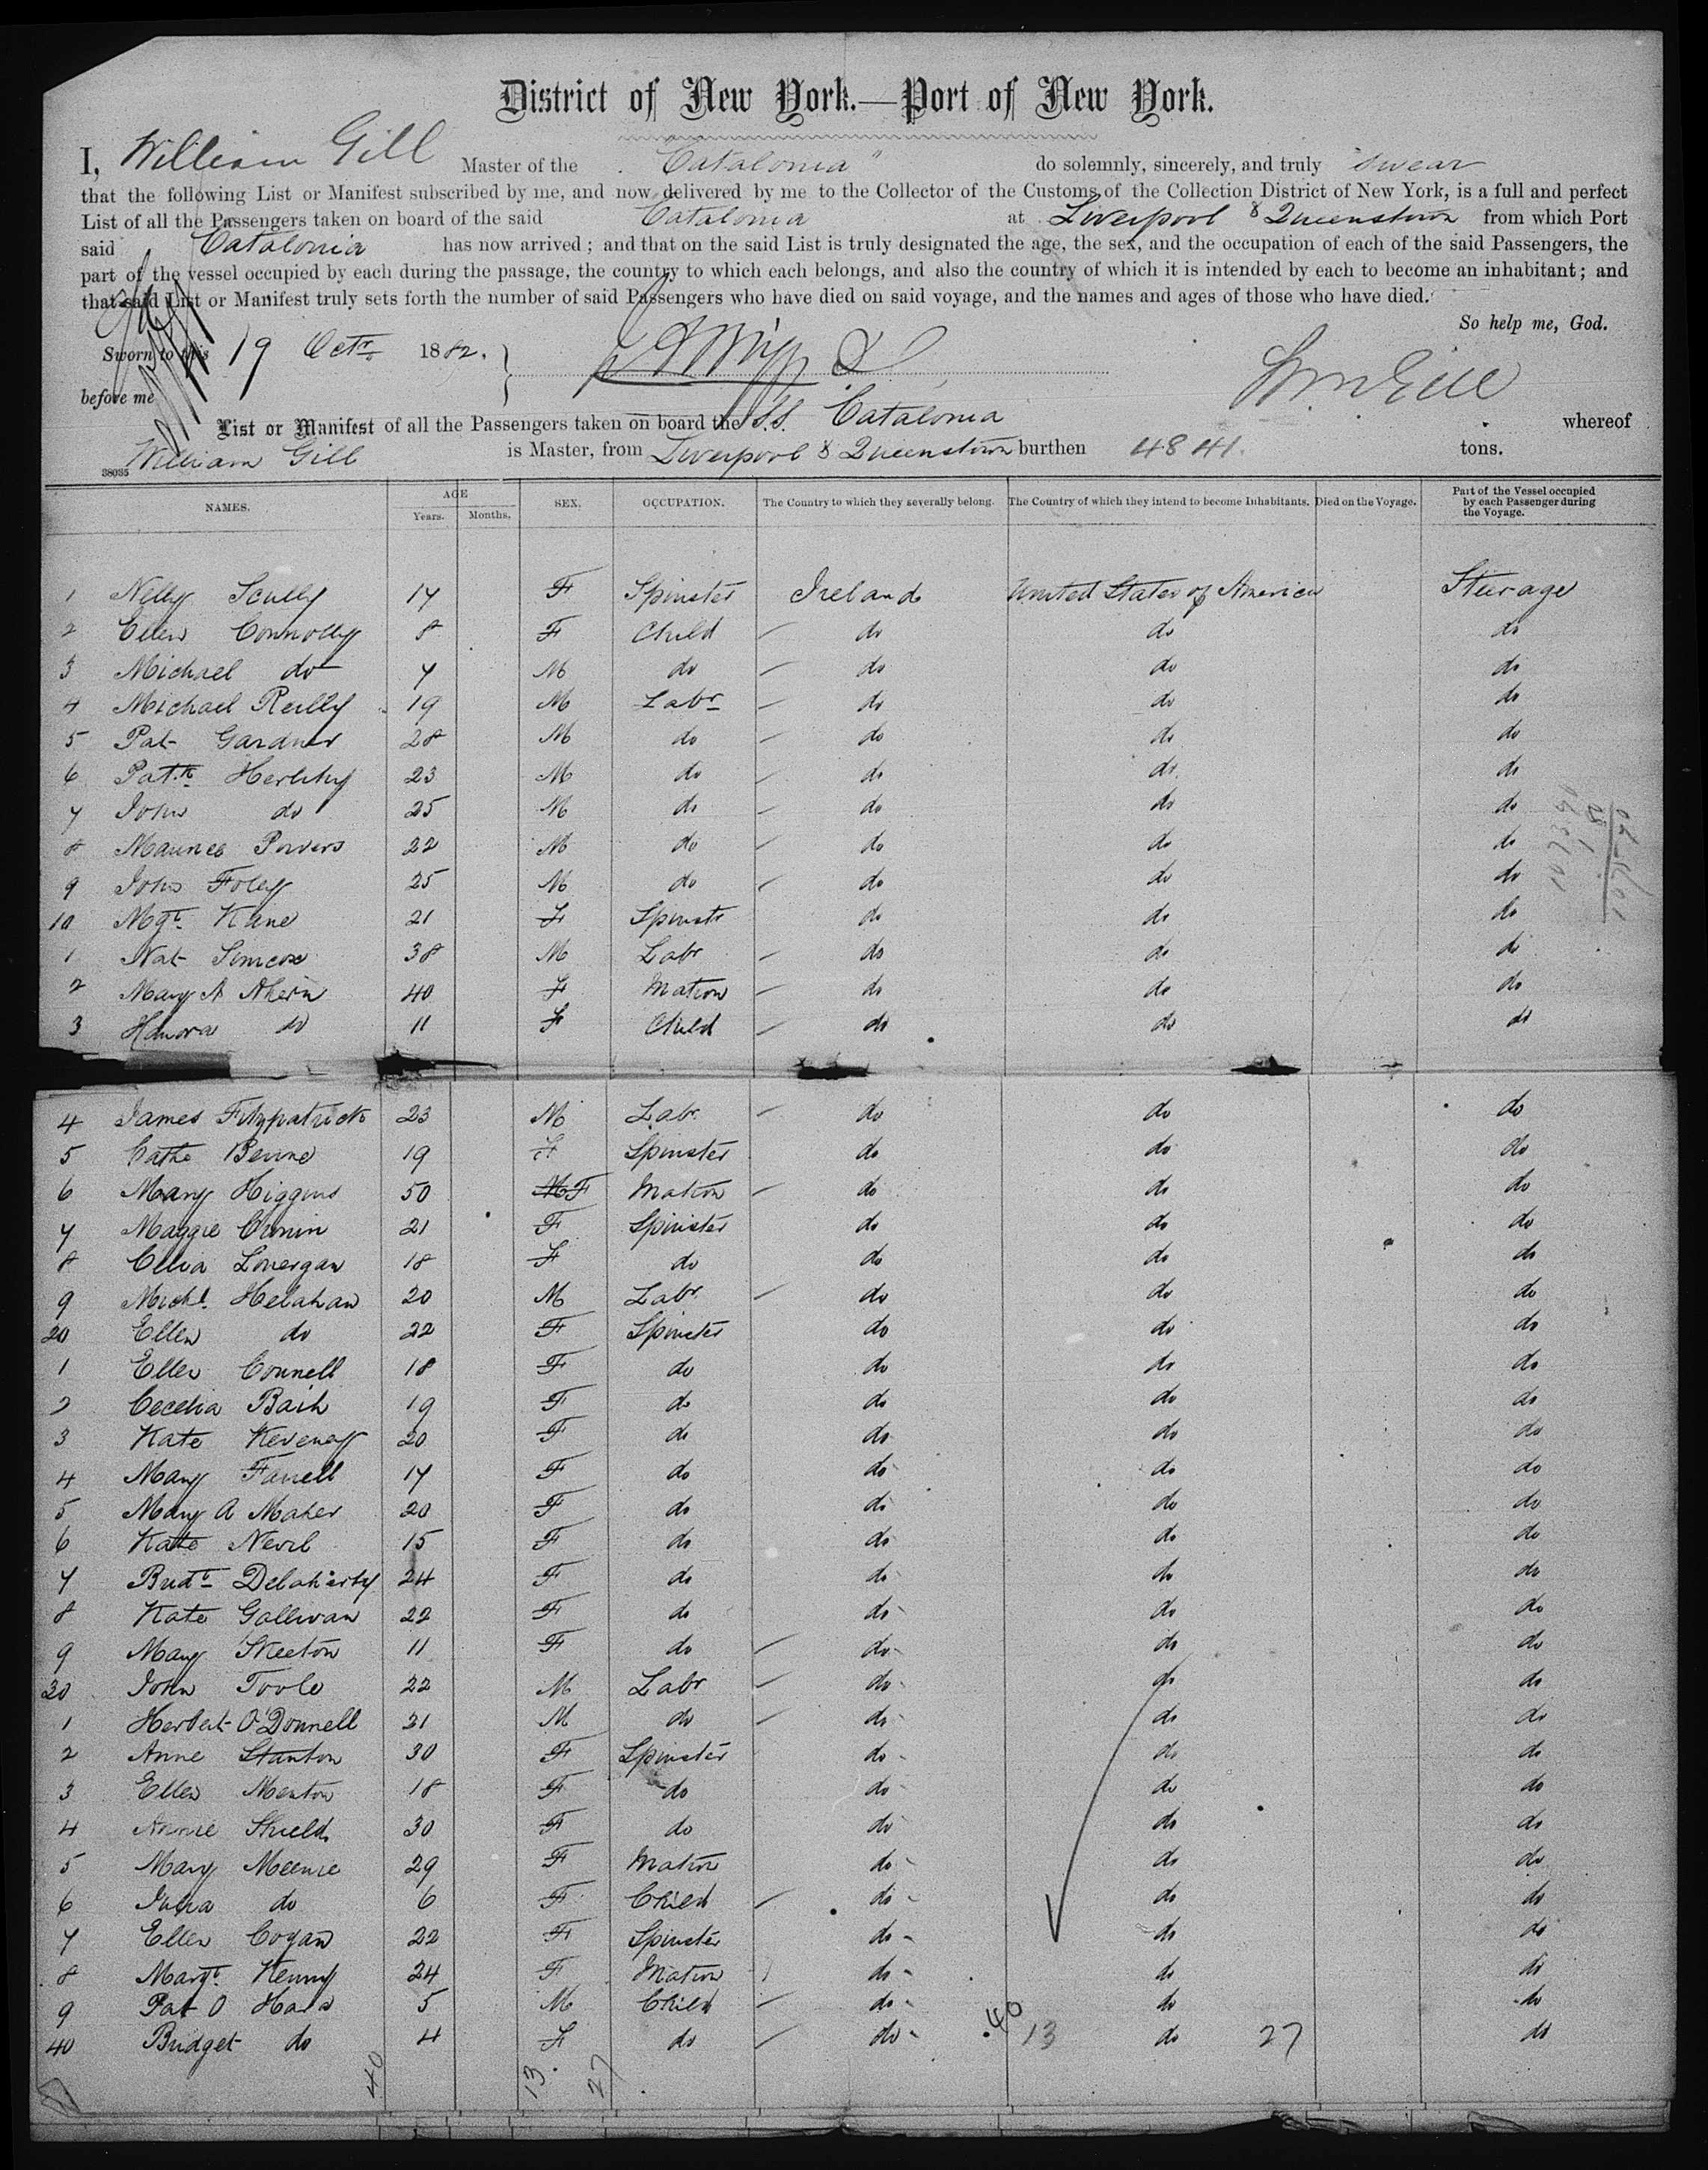 District of New York.—Port of New York.
I, William Gill Master of the "Catalonia" do solemnly, sincerely, and truly swear
that the following List or Manifest subscribed by me, and now delivered by me to the Collector of the Customs of the Collection District of New York, is a full and perfect
List of all the Passengers taken on board of the said Catalonia at Liverpool & Queenstown from which Port
said Catalonia has now arrived; and that on the said List is truly designated the age, the sex, and the occupation of each of the said Passengers, the
part of the vessel occupied by each during the passage, the country to which each belongs, and also the country of which it is intended by each to become an inhabitant; and
that said List or Manifest truly sets forth the number of said Passengers who have died on said voyage, and the names and ages of those who have died.
So help me, God.
Sworn to this 19 Octr. 1882.
before me
Wm Gill
List or Manifest of all the Passengers taken on board the S.S. Catalonia whereof
William Gill is Master, from Liverpool & Queenstown burthen 4841. tons.
38035
NAMES. AGE Years. Months. SEX. OCCUPATION. The Country to which they severally belong. The Country of which they intend to become Inhabitants. Died on the Voyage. Part of the Vessel occupied by each Passenger during the Voyage.
1 Nelly Scully 17 F Spinster Ireland United States of America Steerage
2 Ellen Connolly 8 F Child do do do
3 Michael do 7 M do do do do
4 Michael Reilly 19 M Labr do do do
5 Pat Gardner 28 M do do do do
6 Patk. Herlihy 23 M do do do do
7 John do 25 M do do do do
8 Maurice Powers 22 M do do do do
9 John Foley 25 M do do do do
10 Mgt. Kane 21 F Spinstr do do do
1 Nat Simcox 38 M Labr do do do
2 Mary A Ahern 40 F Matron do do do
3 Honora do 11 F Child do do do
4 James Fitzpatrick 23 M Labr do do do
5 Cathe 19 F Spinster do do do
6 Mary Higgins 50 M F Matron do do do
7 Maggie Cronin 21 F Spinster do do do
8 Celia Lonergan 18 F do do do do
9 Michl. Helahan 20 M Labr. do do do
20 Ellen do 22 F Spinster do do do
1 Ellen Connell 18 F do do do do
2 Cecelia 19 F do do do do
3 Kate Keveney 20 F do do do do
4 Mary Farrell 17 F do do do do
5 Mary A Maher 20 F do do do do
6 Kate Nevil 15 F do do do do
7 Bridt Delahirty 24 F do do do do
8 Kate Gallivan 22 F do do do do
9 Mary Skeeton 11 F do do do do
30 John Toole 22 M Labr do do do
1 Herbert O'Donnell 31 M do do do do
2 Anne Stanton 30 F Spinster do do do
3 Ellen Menton 18 F do do do do
4 Annie Shield 30 F do do do do
5 Mary Meenie 29 F Matron do do do
6 Julia do 6 F Child do do do
7 Ellen Cogan 22 F Spinster do do do
8 Margt. Kenny 24 F Matron do do do
9 Pat O Hara 5 M Child do do do
40 Bridget do 4 F do do 40 13 do 27 do
40 13 27